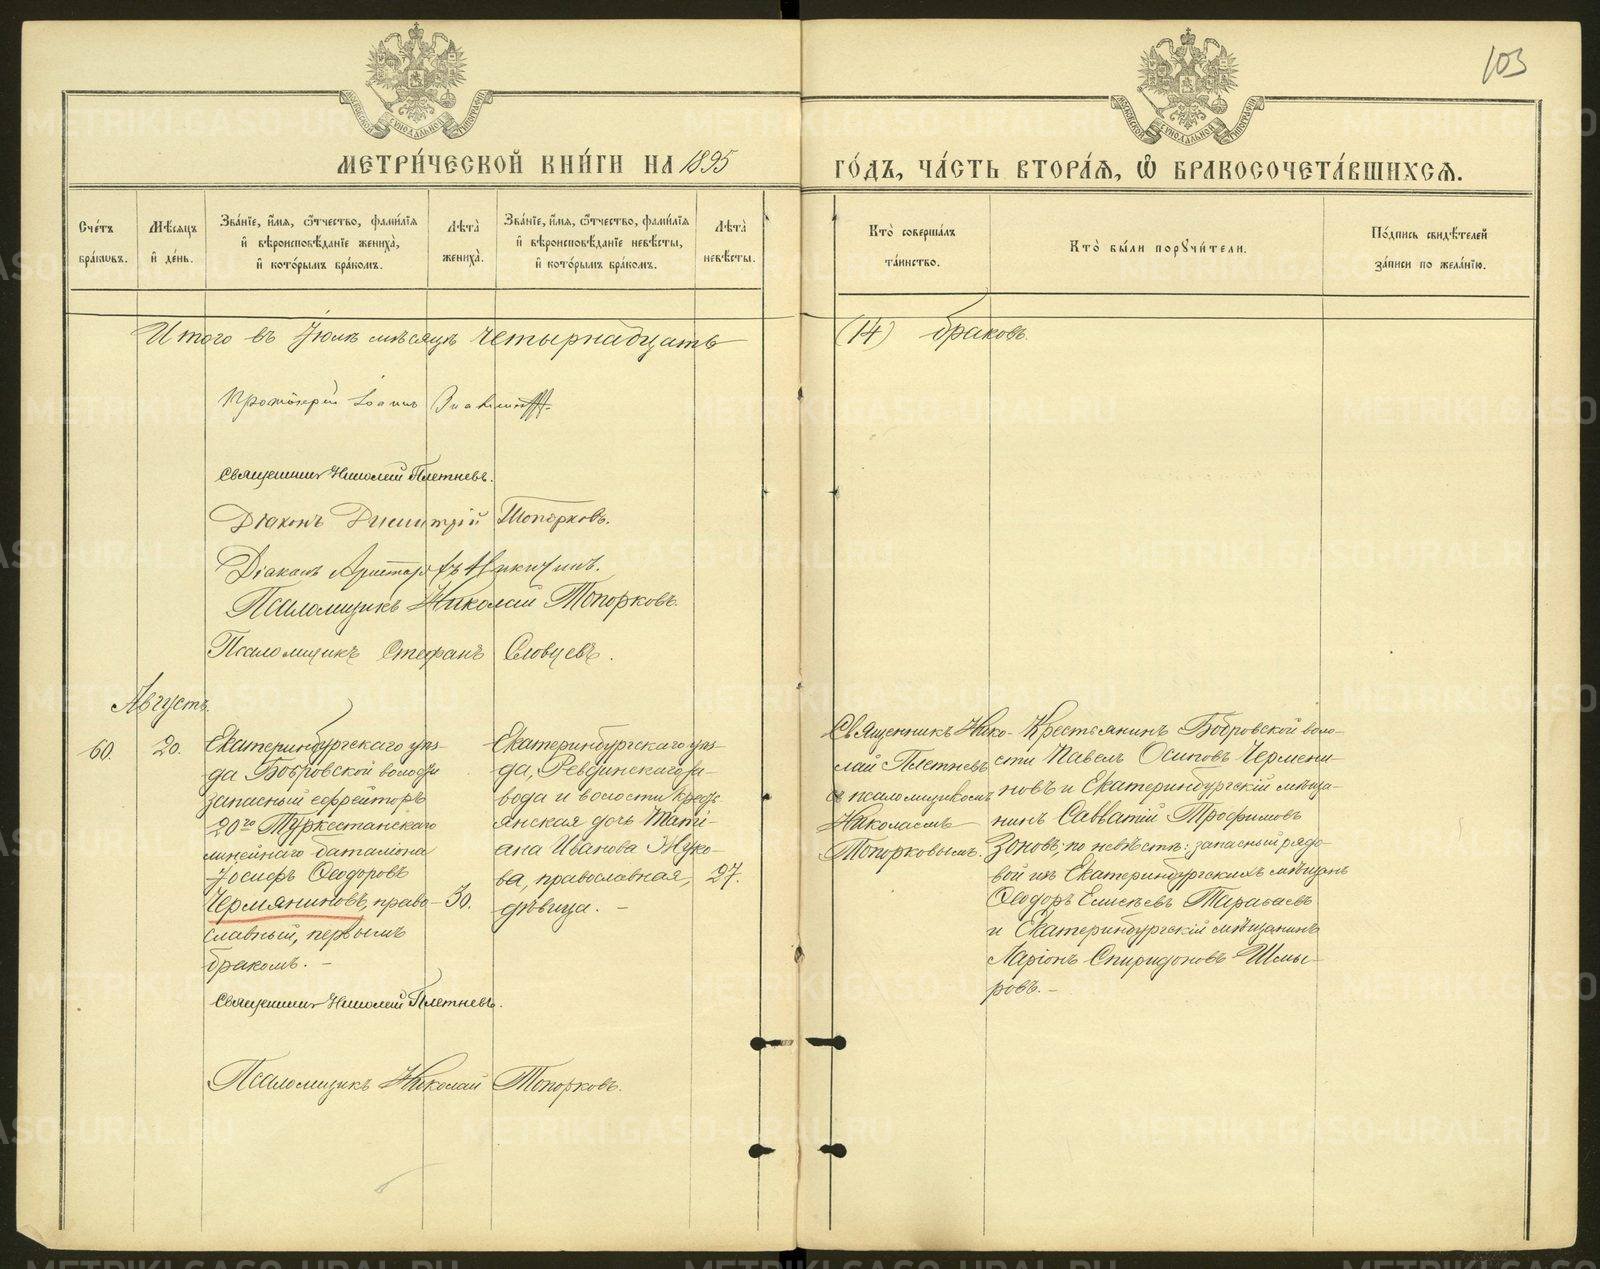 103
МЕТРИ́ЧЕСКОЙ КНИ́ГИ НА 1895
ГО́ДЪ, ЧА́СТЬ ВТОРА́Я, Ѽ БРАКОСОЧЕТА́ВШИХСЯ.
Сче́тъ
бра́ковъ.
Мѣ́сяцъ
и҆ де́нь.
Зва́нїе, и҆́мя, ѻ҆́тчество, фами́лїя
и҆ вѣроисповѣ́данїе жениха̀,
и҆ кото́рымъ бра́комъ.
Лѣта̀
жениха̀.
Зва́нїе, и҆́мя, ѻ҆́тчество, фами́лїя
и҆ вѣроисповѣ́данїе невѣ́сты,
и҆ кото́рымъ бра́комъ.
Лѣта̀
невѣ́сты.
Кто̀ соверша́лъ
та́инство.
Кто̀ бы́ли порꙋчи́тели.
По́дпись свидѣ́телей
за́писи по жела́нїю.
Итого въ Іюлѣ мѣсяцѣ четырнадцать
(14) браковъ.
Протоіерей Іоаннъ
Священникъ Николай Плетневъ.
Діаконъ Димитрій Топорковъ.
Діаконъ Аристархъ Никитинъ.
Псаломщикъ Николай Топорковъ.
Псаломщикъ Стефанъ Словцевъ.
Августъ.
60.
20.
Екатеринбургскаго уѣз-
да Бобровской волости
запасный ефрейторъ
20го Туркестанскаго
линейнаго баталіона
Іосифъ Ѳеодоровъ
Чермяниновъ, право-
славный, первымъ
бракомъ. –
30.
Екатеринбургскаго уѣз-
да, Ревдинскаго за-
вода и волости крест-
янская дочь Тати-
ана Иванова Жуко-
ва, православная,
дѣвица. –
27.
Священникъ Нико-
лай Плетневъ
съ псаломщикомъ
Николаемъ
Топорковымъ.
Крестьянинъ Бобровской воло-
сти Павелъ Осиповъ Чермени-
новъ и Екатеринбургскій мѣща-
нинъ Савватій Трофимовъ
Зоновъ; по невѣстѣ: запасный рядо-
вой изъ Екатеринбургскихъ мѣщанъ
Ѳеодоръ Елисѣевъ Тарасаевъ
и Екатеринбургскій мѣщанинъ
Ларіонъ Спиридоновъ Шмы-
ровъ. –
Священникъ Николай Плетневъ.
Псаломщикъ Николай Топорковъ.